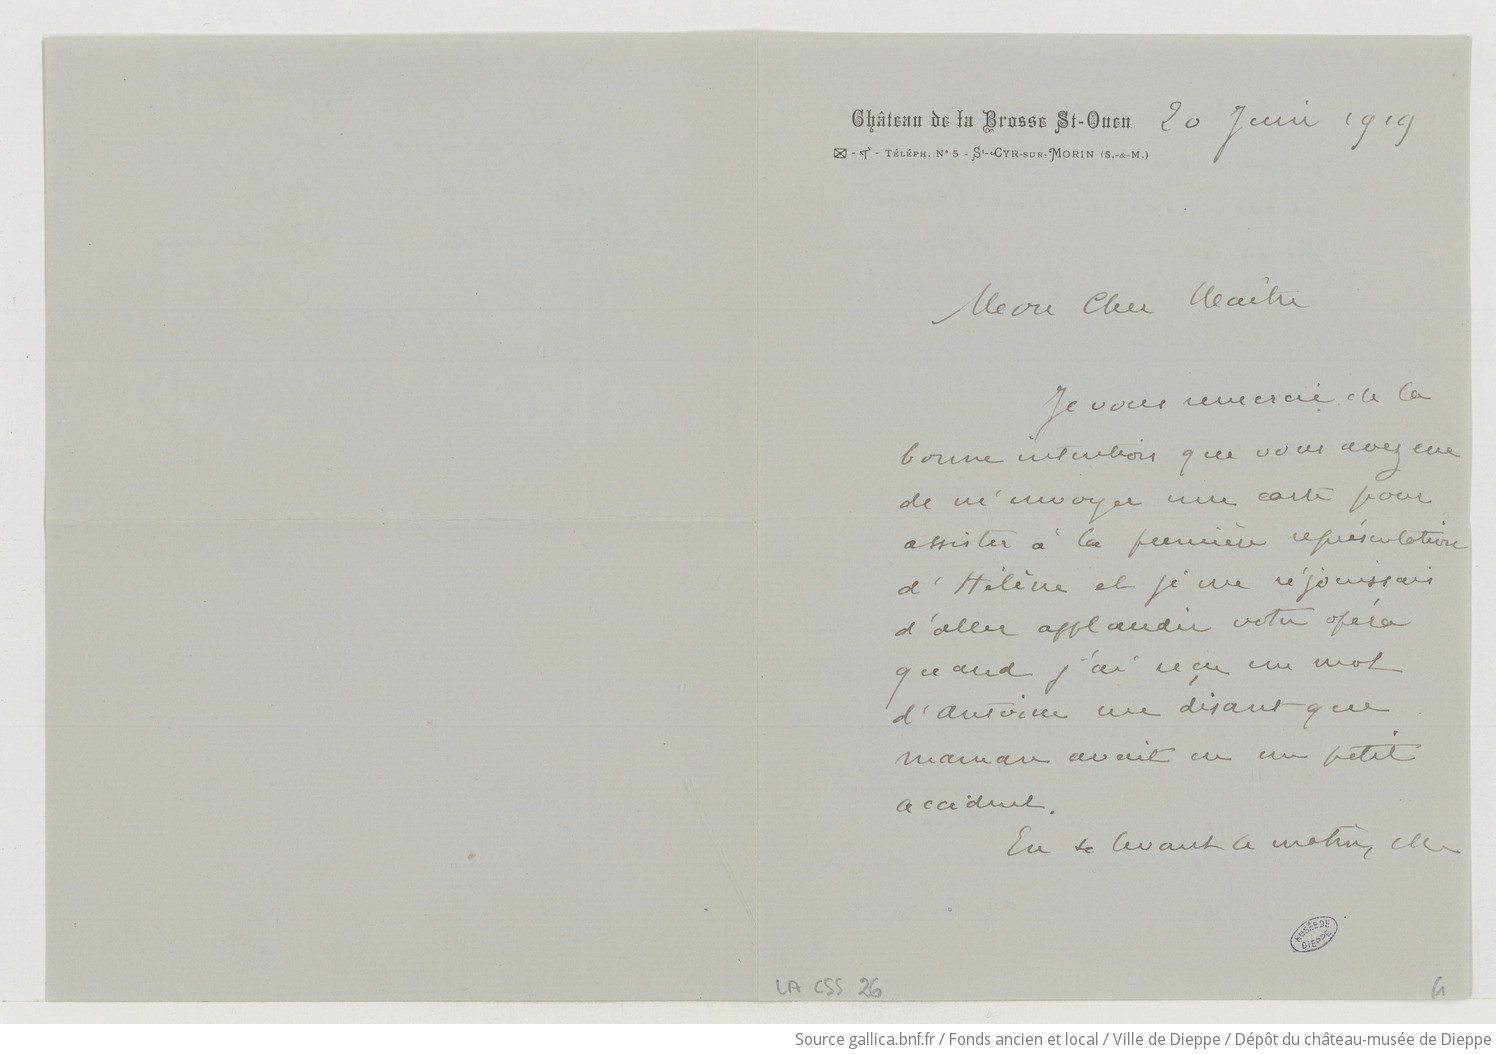 Château de la Brosse St-Ouen 20 Juin 1919
TÉLÉPH. N° 5 - St-CYR-SUR-MORIN (S.-&-M.)
Mon Cher Maître
Je vous remercie de la
bonne intention que vous avez eue
de m'envoyer une carte pour
assister à la première représentation
d'Hélène et je me réjouissais
d'aller applaudir votre opéra
quand j'ai reçu un mot
d'Antoine me disant que
maman avait eu un petit
accident.
En se levant le matin, elle
MUSÉE DE
DIEPPE
LA CSS 26
Source gallica.bnf.fr / Fonds ancien et local / Ville de Dieppe / Dépôt du château-musée de Dieppe